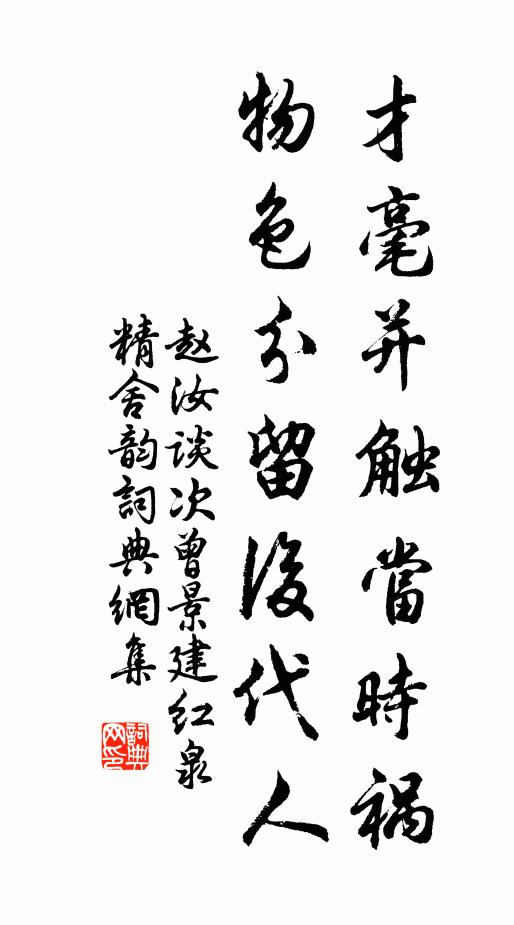 才毫并触當時祸
物色分留後代人
赵汝谈次曾景建红泉
精舍韵詞典網集
詞典
网印